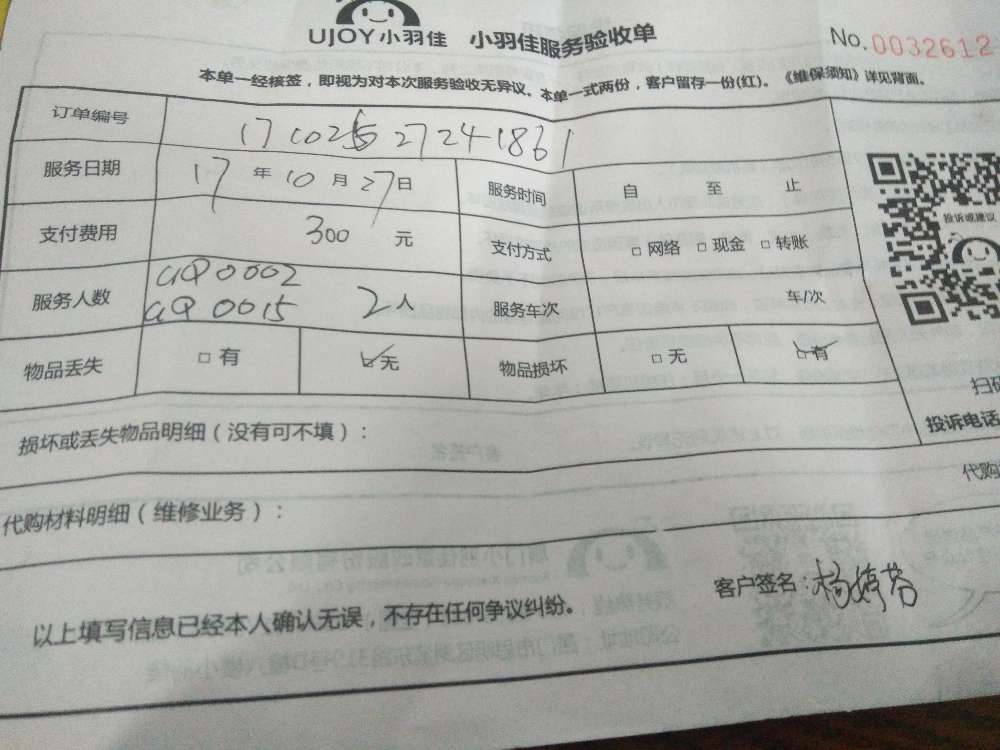 UJOY小羽佳 小羽佳服务验收单 No.0032612
本单一经核签，即视为对本次服务验收无异议。本单一式两份，客户留存一份(红)。《维保须知》详见背面。
订单编号 17102527241861
服务日期 17年10月27日 服务时间 自 至 止
支付费用 300 元 支付方式 □网络 □现金 □转账
服务人数 GQ0002
GQ0015 2人 服务车次 车/次
物品丢失 □有 ☑无 物品损坏 □无 ☑有
投诉或建议
扫码
投诉电话
损坏或丢失物品明细（没有可不填）：
代购
代购材料明细（维修业务）：
以上填写信息已经本人确认无误，不存在任何争议纠纷。 客户签名：杨婷芬